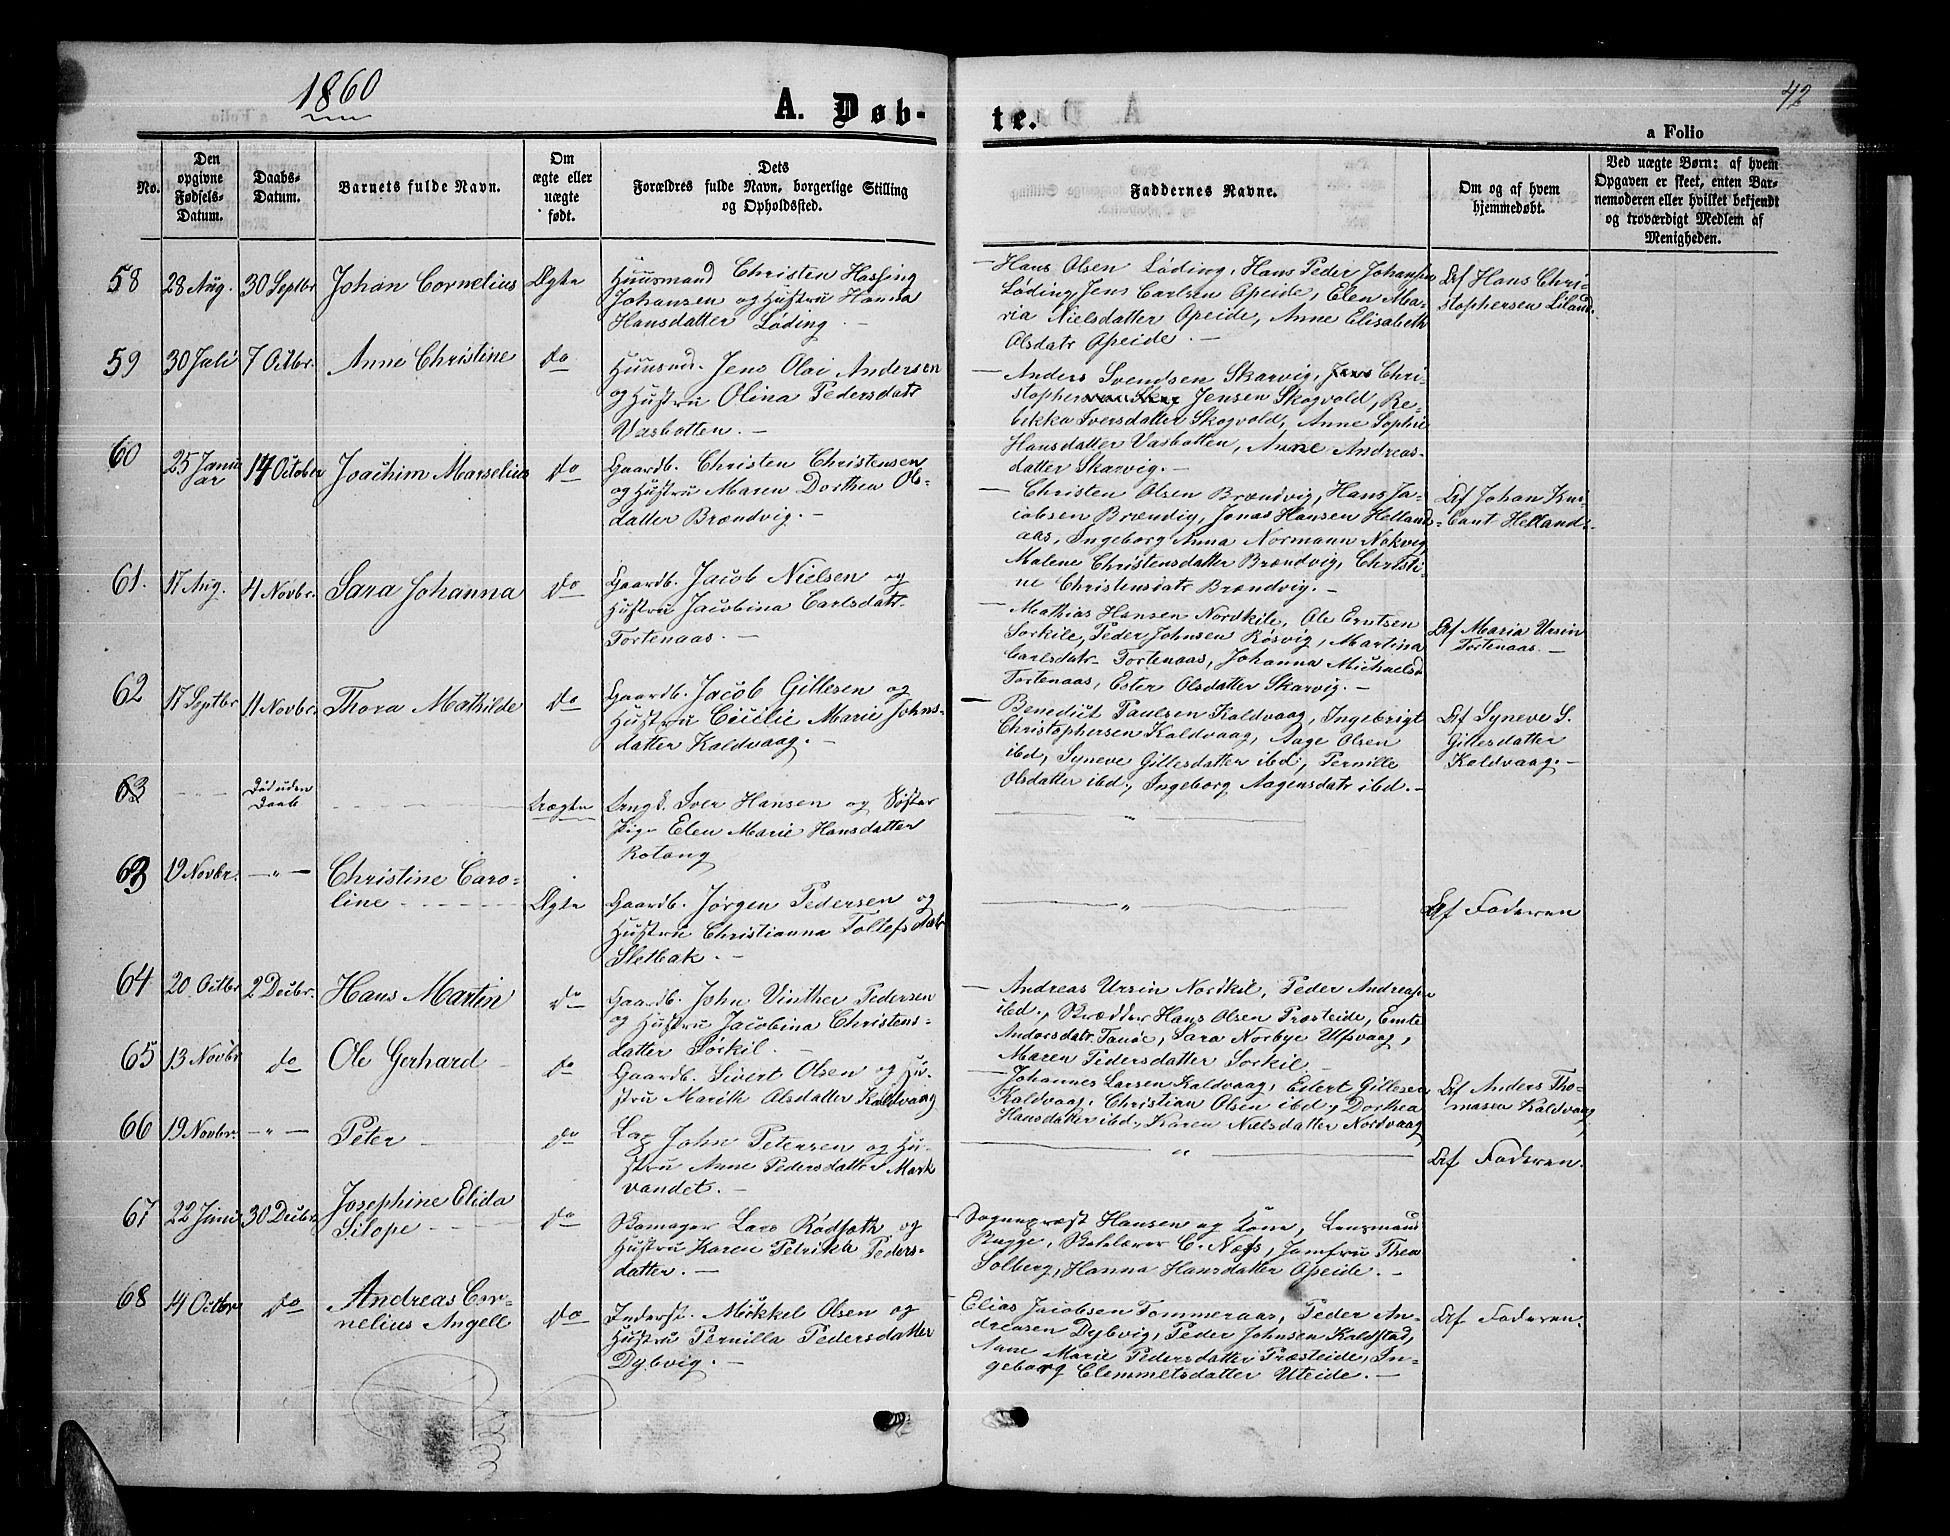 1860
A. Døb-
te.
42
a Folio
No.
Den
opgivne
Fødsels-
Datum.
Daabs-
Datum.
Barnets fulde Navn.
Om
ægte eller
uægte
født.
Dets
Forældres fulde Navn, borgerlige Stilling
og Opholdssted.
Faddernes Navne.
Om og af hvem
hjemmedøbt.
Ved uægte Børn: af hvem
Opgaven er skeet, enten Bar-
nemoderen eller hvilket bekjendt
og troværdigt Medlem af
Menigheden.
58
28 Aug.
30 Septbr
Johan Cornelius
Ægte
Huusmand Christen Hassing
Johansen og Hustru Hanna
Hansdatter Løding. —
— Hans Olsen Løding, Hans Peder Johansen
Løding, Jens Carlsen Opeide, Elen Ma-
ria Nielsdatter Opeide, Anne Elisabeth
Olsdatr Opeide. —
Af Hans Chri-
stophersen Liland.
59
30 Juli
7 Octbr.
Anne Christine
do
Huusmd. Jens Olai Andersen
og Hustru Olina Pedersdatr
Vasbotten. —
— Anders Svendsen Skarvig, Jens Chri-
stophersen Jensen Skogvold, Re-
bikka Iversdatter Skogvold, Anne Sophie
Hansdatter Vasbotten, Anne Andreas-
datter Skarvig. —
60
25 Janu
ar
14 October
Joachim Marselius
do
Gaardb. Christen Christensen
og Hustru Maren Dorthea Ols-
datter Brændvig. —
— Christen Olsen Brændvig, Hans Ja-
cobsen Brændvig, Jonas Hansen Helland-
aas, Ingeborg Anna Normann Nakvig
Malene Christensdatter Brændvig, Christi-
ne Christensdatr Brændvig. —
Af Johan Kni-
Cant Helland.
61.
17 Aug.
4 Novbr.
Sara Johanna
do
Gaardb. Jacob Nielsen og
Hustru Jacobina Carlsdatr.
Tortenaas. —
— Mathias Hansen Nordkile, Ole Erntsen
Sorkile, Peder Johnsen Røsvig, Martina
Carlsdatr Tortenaas, Johanna Michaelsd
Tortenaas, Ester Olsdatter Skarvig. —
Af Maria Ursin
Tortenaas. —
62
17 Septbr
11 Novbr.
Thora Mathilde
do
Gaardb. Jacob Gillesen og
Hustru Cicilie Marie Johns-
datter Kaldvaag. —
— Benedict Paulsen Kaldvaag, Ingebrigt
Christophersen Kaldvaag, Aage Olsen
ibd, Syneve Gillesdatter ibd, Pernille
Olsdatter ibd., Ingeborg Aagensdatr ibd. —
Af Syneve S.
Gillesdatter
Kaldvaag. —
63
Død uden
Daab
Uægte
Ungk. Iver Hansen og Søster
Pige Elen Marie Hansdatter
Rotang
"
63
19 Novbr.
— " —
Christine Caro-
line
Ægte
Gaardb. Jørgen Pedersen og
Hustru Christianna Toltefsdatr
Sletbak. —
"
Af Faderen
64
20 Octbr
2 Decbr.
Hans Martin
do
Gaardb. John Vinther Pedersen
og Hustru Jacobina Christens-
datter Sørkil. —
— Andreas Ursin Nordkil, Peder Andreasen
ibd., Skrædder Hans Olsen Præsteide, Emte
Andersdatr Tanøe, Sara Norbye Ulfsvaag,
Maren Pedersdatter Sorkil. —
65
13 Novbr
do
Ole Gerhard
do
Gaardb. Sivert Olsen og Hu-
stru Marith Olsdatter Kaldvaag
— Johannes Larsen Kaldvaag, Edert Gillesen
Kaldvaag, Christian Olsen ibd, Dorthea
Hansdatter ibd., Karen Nielsdatter Nordvaag
Af Anders Tho-
masen Kaldvaag
66
19 Novbr.
— " —
Peter
do
Lap John Petersen og Hu-
stru Anne Pedersdatter Mark
vandet. —
"
Af Faderen.
67
22 Juni
30 Decbr.
Josephine Elida
Silope
do
Skomager Lars Rødseth og
Hustru Karen Petrikka Peders-
datter. —
Sognepræst Hansen og Kone, Lensmand
Bugge, Skolelærer C. Næss, Jomfru Thea
Solberg, Hanna Hansdatter Opeide. —
68
14 Octbr
do
Andreas Cor-
nelius Angell
do
Inderst. Mikkel Olsen og
Hustru Pernilla Pedersdatter
Dybvig. —
Elias Jacobsen Tommeraas, Peder An-
dreasen Dybvig, Peder Johnsen Kaldstad,
Anne Marie Pedersdatter Præsteide, In-
geborg Clemmetsdatter Uteide. —
Af Faderen.